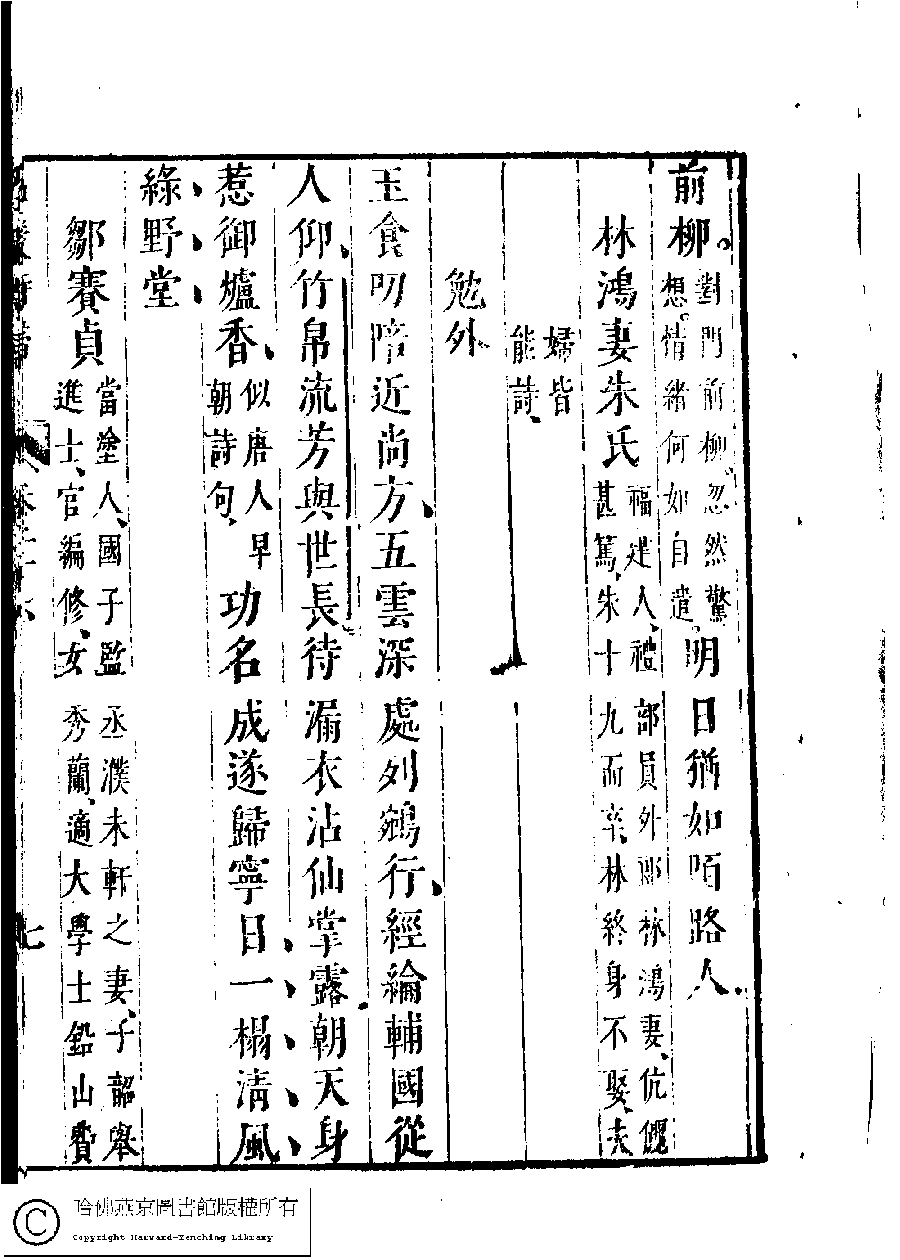 前柳。對門前柳、忽然驚想。情緒何如自遣。明日猶如陌路人。
林鴻妻朱氏福建人、禮部員外郎林鴻妻、伉儷甚篤、朱十九而卒、林終身不娶、夫
婦皆能詩、
勉外
玉食叨陪近尚方、五雲深處列鵷行、經綸輔國從
人仰、竹帛流芳與世長待漏衣沾仙掌露朝天身
惹御爐香、似唐人早朝詩句、功名成遂歸寧日一榻清風
綠野堂
鄒賽貞當塗人、國子監丞濮未軒之妻、子韶舉進士、官編修、女秀蘭、適大學士鉛山費
七
哈佛燕京圖書館版權所有
Copyright Harvard-Yenching Library